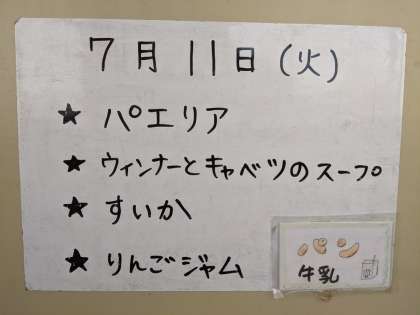 7月11日(火)
★ パエリア
★ ウィンナーとキャベツのスープ
★ すいか
★ りんごジャム
パン
牛乳